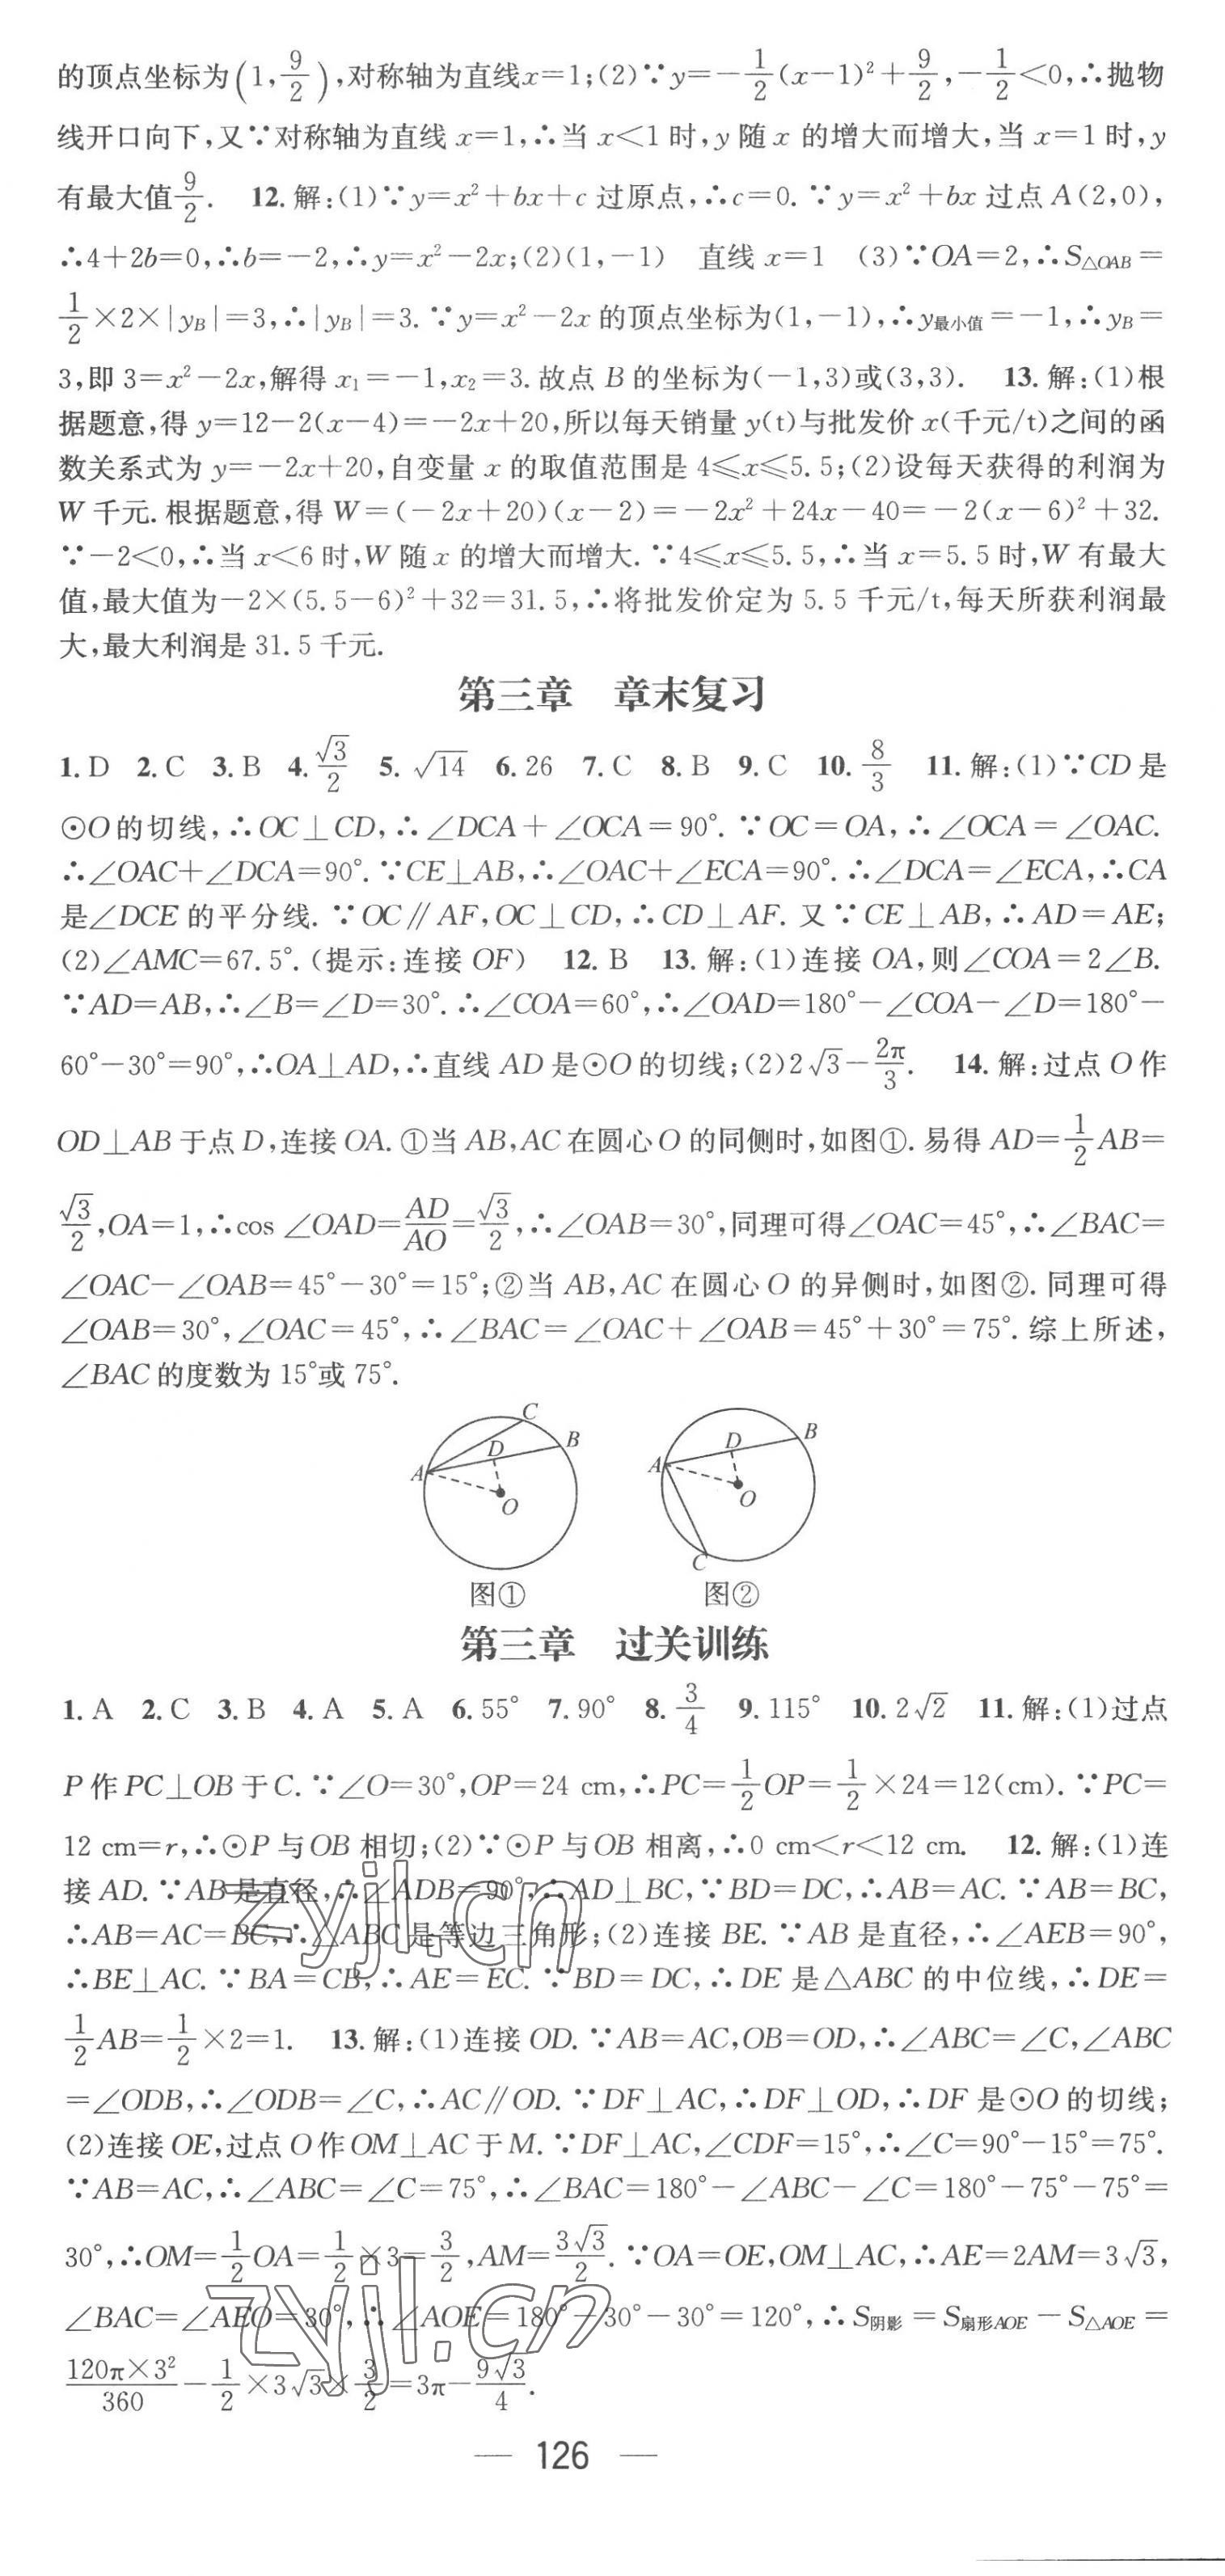 的顶点坐标为(1,9/2),对称轴为直线x=1;(2)∵y=-1/2(x-1)²+9/2,-1/2<0,∴抛物
线开口向下,又∵对称轴为直线 x=1,∴当 x<1 时,y 随 x 的增大而增大,当 x=1 时,y
有最大值9/2. 12.解:(1)∵y=x²+bx+c 过原点,∴c=0.∵y=x²+bx 过点 A(2,0),
∴4+2b=0,∴b=-2,∴y=x²-2x;(2)(1,-1) 直线 x=1 (3)∵OA=2,∴S△OAB=
1/2×2×|yB|=3,∴|yB|=3.∵y=x²-2x 的顶点坐标为(1,-1),∴y最小值=-1,∴yB=
3,即 3=x²-2x,解得 x₁=-1,x₂=3.故点 B 的坐标为(-1,3)或(3,3). 13.解:(1)根
据题意,得 y=12-2(x-4)=-2x+20,所以每天销量 y(t)与批发价 x(千元/t)之间的函
数关系式为 y=-2x+20,自变量 x 的取值范围是 4≤x≤5.5;(2)设每天获得的利润为
W 千元.根据题意,得 W=(-2x+20)(x-2)=-2x²+24x-40=-2(x-6)²+32.
∵-2<0,∴当 x<6 时,W 随 x 的增大而增大.∵4≤x≤5.5,∴当 x=5.5 时,W 有最大
值,最大值为-2×(5.5-6)²+32=31.5,∴将批发价定为 5.5 千元/t,每天所获利润最
大,最大利润是 31.5 千元.
第三章 章末复习
1.D 2.C 3.B 4.√3/2 5.√14 6.26 7.C 8.B 9.C 10.8/3 11.解:(1)∵CD 是
⊙O的切线,∴OC⊥CD,∴∠DCA+∠OCA=90°.∵OC=OA,∴∠OCA=∠OAC.
∴∠OAC+∠DCA=90°.∵CE⊥AB,∴∠OAC+∠ECA=90°.∴∠DCA=∠ECA,∴CA
是∠DCE 的平分线.∵OC∥AF,OC⊥CD,∴CD⊥AF.又∵CE⊥AB,∴AD=AE;
(2)∠AMC=67.5°.(提示:连接 OF) 12.B 13.解:(1)连接 OA,则∠COA=2∠B.
∵AD=AB,∴∠B=∠D=30°.∴∠COA=60°,∴∠OAD=180°-∠COA-∠D=180°-
60°-30°=90°,∴OA⊥AD,∴直线 AD 是⊙O 的切线;(2)2√3-2π/3. 14.解:过点 O 作
OD⊥AB 于点 D,连接 OA.①当 AB,AC 在圆心 O 的同侧时,如图①.易得 AD=1/2AB=
√3/2,OA=1,∴cos ∠OAD=AD/AO=√3/2,∴∠OAB=30°,同理可得∠OAC=45°,∴∠BAC=
∠OAC-∠OAB=45°-30°=15°;②当 AB,AC 在圆心 O 的异侧时,如图②.同理可得
∠OAB=30°,∠OAC=45°,∴∠BAC=∠OAC+∠OAB=45°+30°=75°.综上所述,
∠BAC 的度数为 15°或 75°.
C
B
D
A
O
B
D
A
O
C
图① 图②
第三章 过关训练
1.A 2.C 3.B 4.A 5.A 6.55° 7.90° 8.3/4 9.115° 10.2√2 11.解:(1)过点
P 作 PC⊥OB 于 C.∵∠O=30°,OP=24 cm,∴PC=1/2OP=1/2×24=12(cm).∵PC=
12 cm=r,∴⊙P 与 OB 相切;(2)∵⊙P 与 OB 相离,∴0 cm<r<12 cm. 12.解:(1)连
接 AD.∵AB 是直径,∴∠ADB=90°,∴AD⊥BC,∵BD=DC,∴AB=AC.∵AB=BC,
∴AB=AC=BC,∴△ABC 是等边三角形;(2)连接 BE.∵AB 是直径,∴∠AEB=90°,
∴BE⊥AC.∵BA=CB,∴AE=EC.∵BD=DC,∴DE 是△ABC 的中位线,∴DE=
1/2AB=1/2×2=1. 13.解:(1)连接 OD.∵AB=AC,OB=OD,∴∠ABC=∠C,∠ABC
=∠ODB,∴∠ODB=∠C,∴AC∥OD.∵DF⊥AC,∴DF⊥OD,∴DF 是⊙O 的切线;
(2)连接 OE,过点 O 作 OM⊥AC 于 M.∵DF⊥AC,∠CDF=15°,∴∠C=90°-15°=75°.
∵AB=AC,∴∠ABC=∠C=75°,∴∠BAC=180°-∠ABC-∠C=180°-75°-75°=
30°,∴OM=1/2OA=1/2×3=3/2,AM=3√3/2.∵OA=OE,OM⊥AC,∴AE=2AM=3√3,
∠BAC=∠AEO=30°,∴∠AOE=180°-30°-30°=120°,∴S阴影=S扇形AOE-S△AOE=
120π×3²/360-1/2×3√3×3/2=3π-9√3/4.
zyjl.cn
zyjl.cn
— 126 —